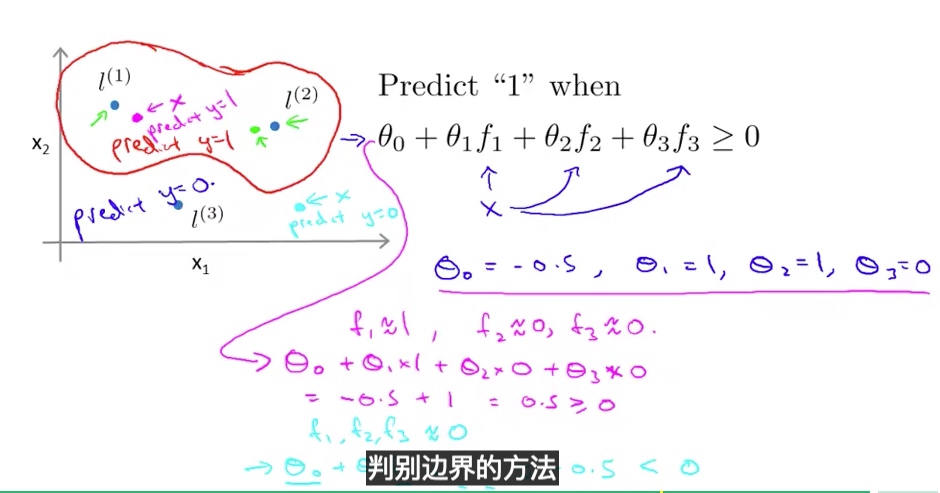 l^{(1)}
← x
predict y=1
l^{(2)}
predict y=1
x₂
predict y=0.
l^{(3)}
← x
predict y=0
x₁
Predict “1” when
→ θ₀ + θ₁f₁ + θ₂f₂ + θ₃f₃ ≥ 0
x
θ₀ = -0.5, θ₁ = 1, θ₂ = 1, θ₃ = 0
f₁ ≈ 1, f₂ ≈ 0, f₃ ≈ 0.
θ₀ + θ₁×1 + θ₂×0 + θ₃×0
= -0.5 + 1 = 0.5 ≥ 0
f₁, f₂, f₃ ≈ 0
→ θ₀ + 0.5 < 0
判别边界的方法